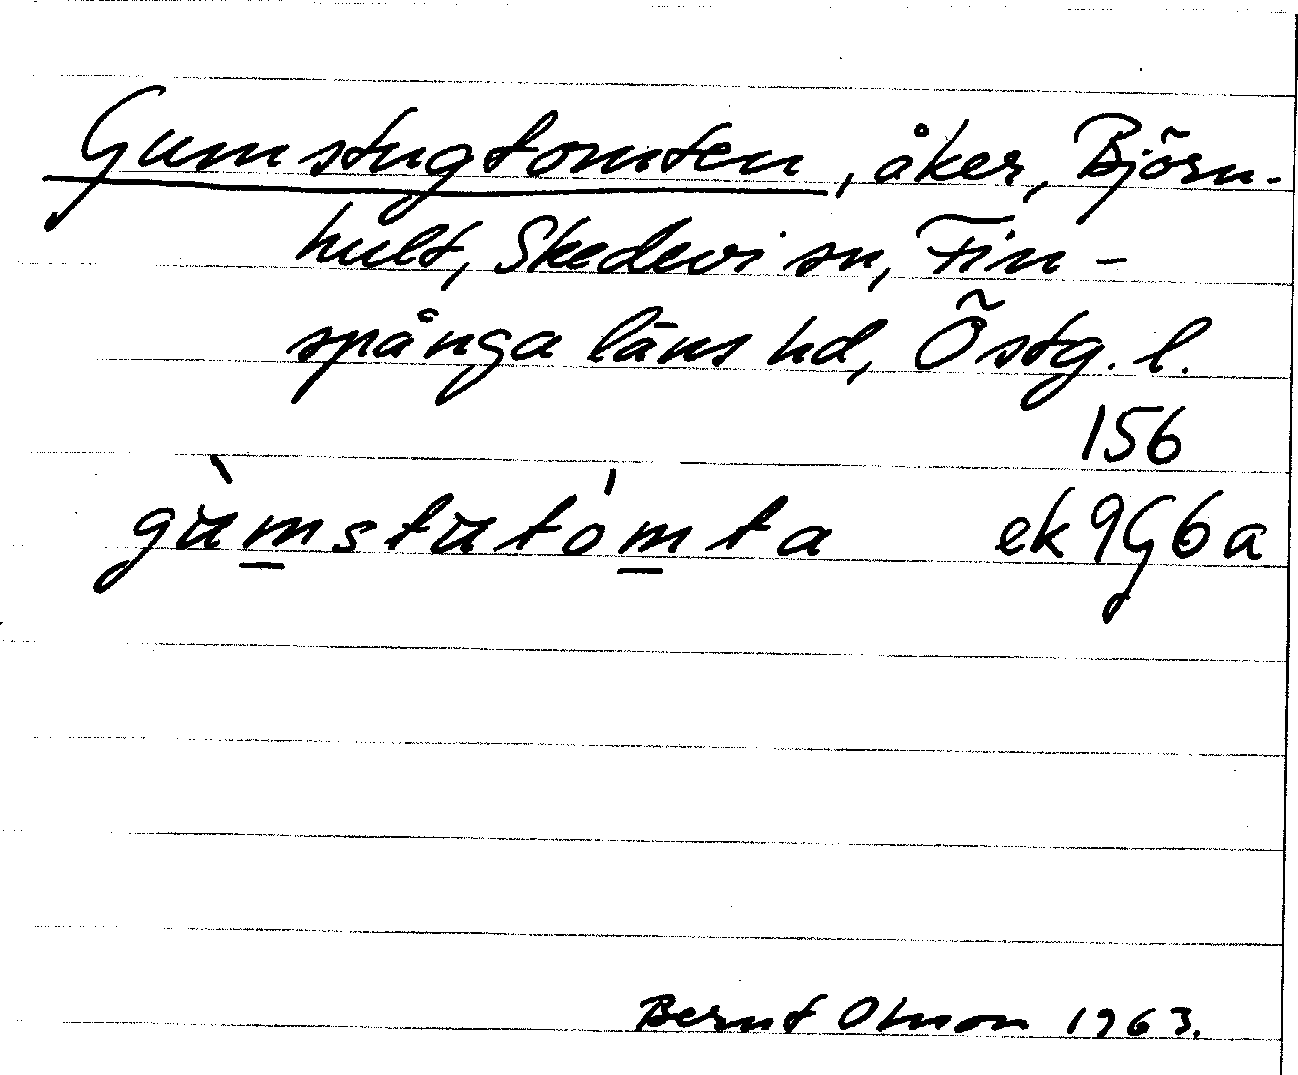 Gumstugtomten, åker, Björn-
hult, Skedevi sn, Fin-
spånga läns hd, Östg. l.
156
gùmstutómta ek 9G6a
Bernt Olsson 1963.